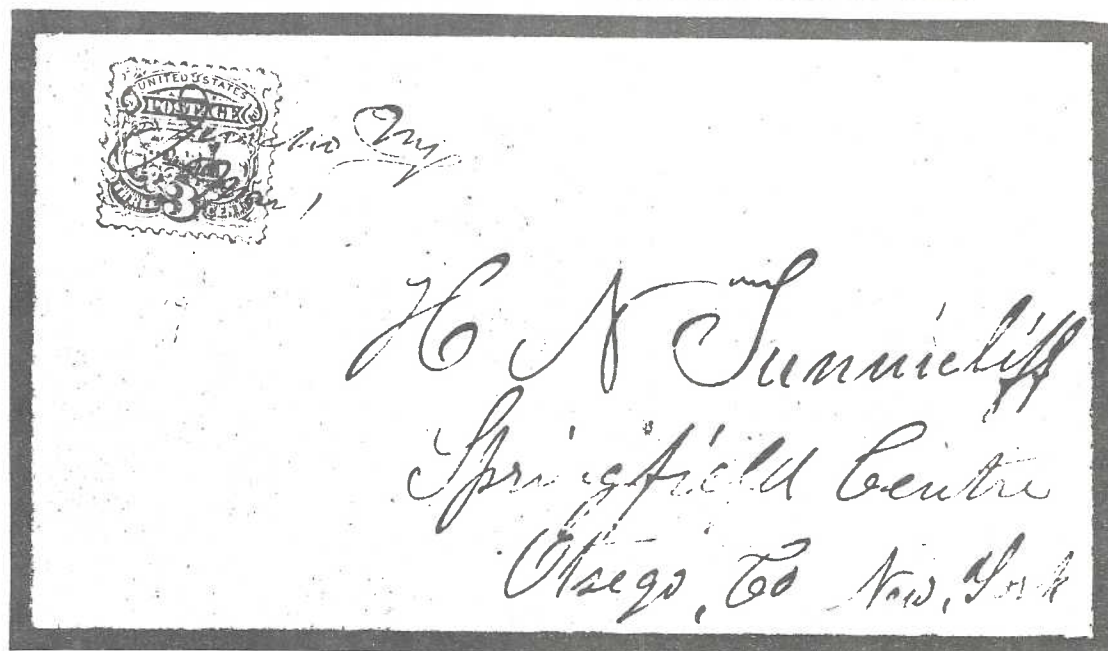 UNITED STATES
POSTAGE
Jericho Ny
3
H N Tunnicliff
Springfield Centre
Otsego, Co New, York